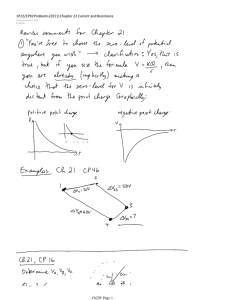 1P22/1P92 Problems (2011) Chapter 22 Current and Resistance
Review comments for Chapter 21:
① "You're free to choose the zero-level of potential
anywhere you wish" → clarification: Yes, this is
true, but if you use the formula V = kQ/r, then
you are already (implicitly) making a
choice that the zero-level for V is infinitely
distant from the point charge. Graphically:
positive point charge
negative point charge
V
V
r
r
Examples Ch 21 CP 46
1
2
3
4
Ch 21, CP 16
Determine
Ch22P Page 1